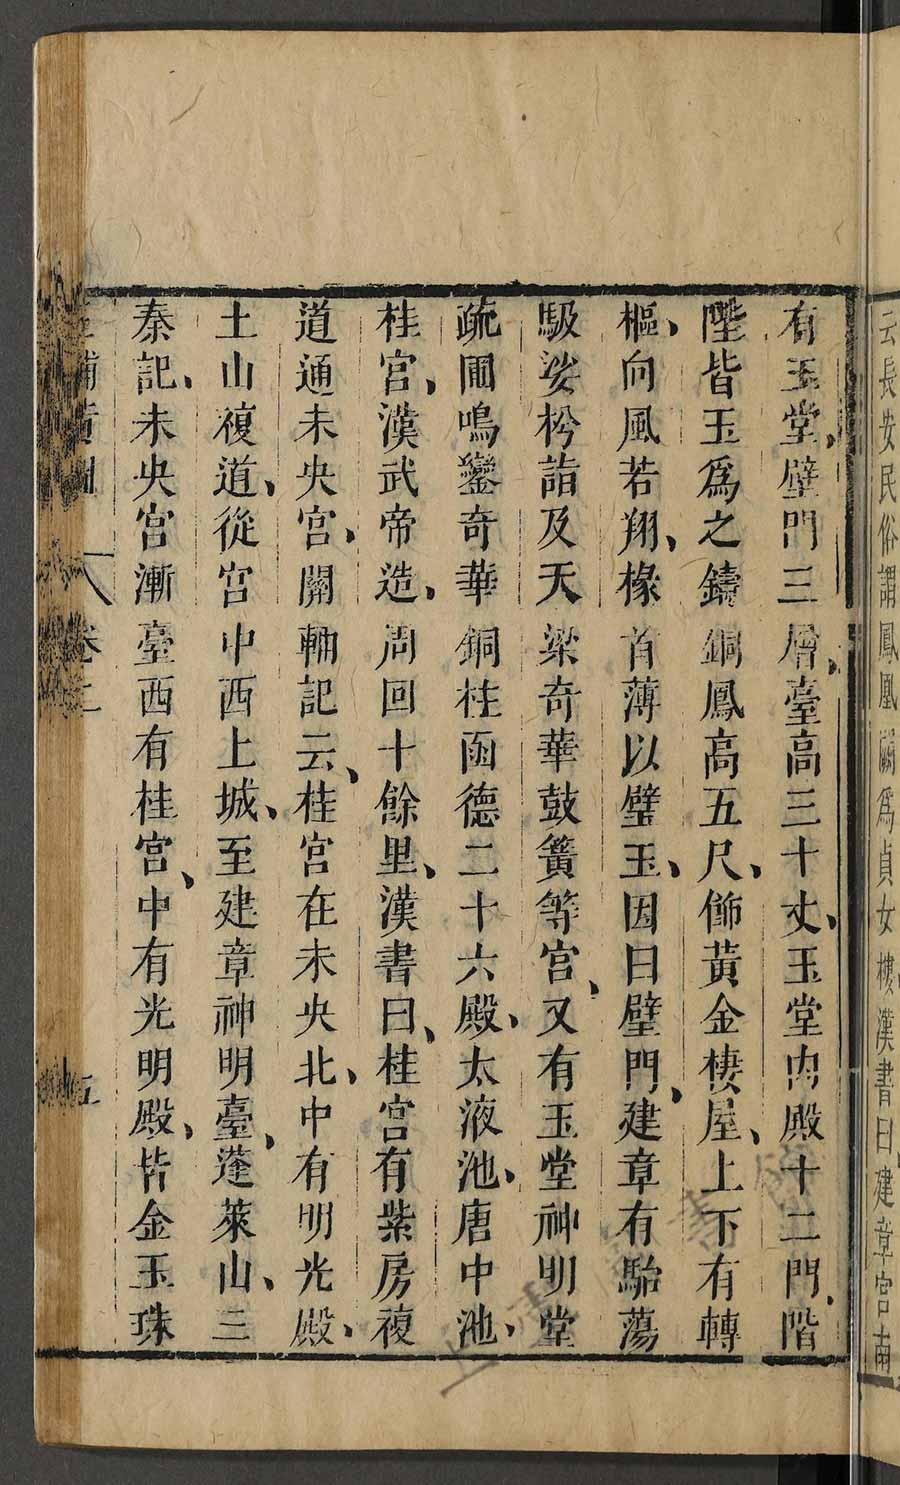 云長安民俗謂鳳凰闕爲貞女樓漢書曰建章宮南
有玉堂、壁門三層、臺高三十丈、玉堂内殿十二門、階
陛皆玉爲之鑄銅鳳高五尺、飾黃金棲屋、上下有轉
樞、向風若翔、椽首薄以璧玉、因曰璧門、建章有駘蕩
馺娑枍詣及天梁奇華鼓簧等宮、又有玉堂神明堂
疏圃鳴鑾奇華銅柱函德二十六殿、太液池、唐中池、
桂宮、漢武帝造、周回十餘里、漢書曰、桂宮有紫房複
道通未央宮、關輔記云、桂宮在未央北、中有明光殿、
土山複道、從宮中西上城、至建章神明臺、蓬萊山、三
秦記、未央宮漸臺西有桂宮、中有光明殿、皆金玉珠
輔黃圖 卷二 五